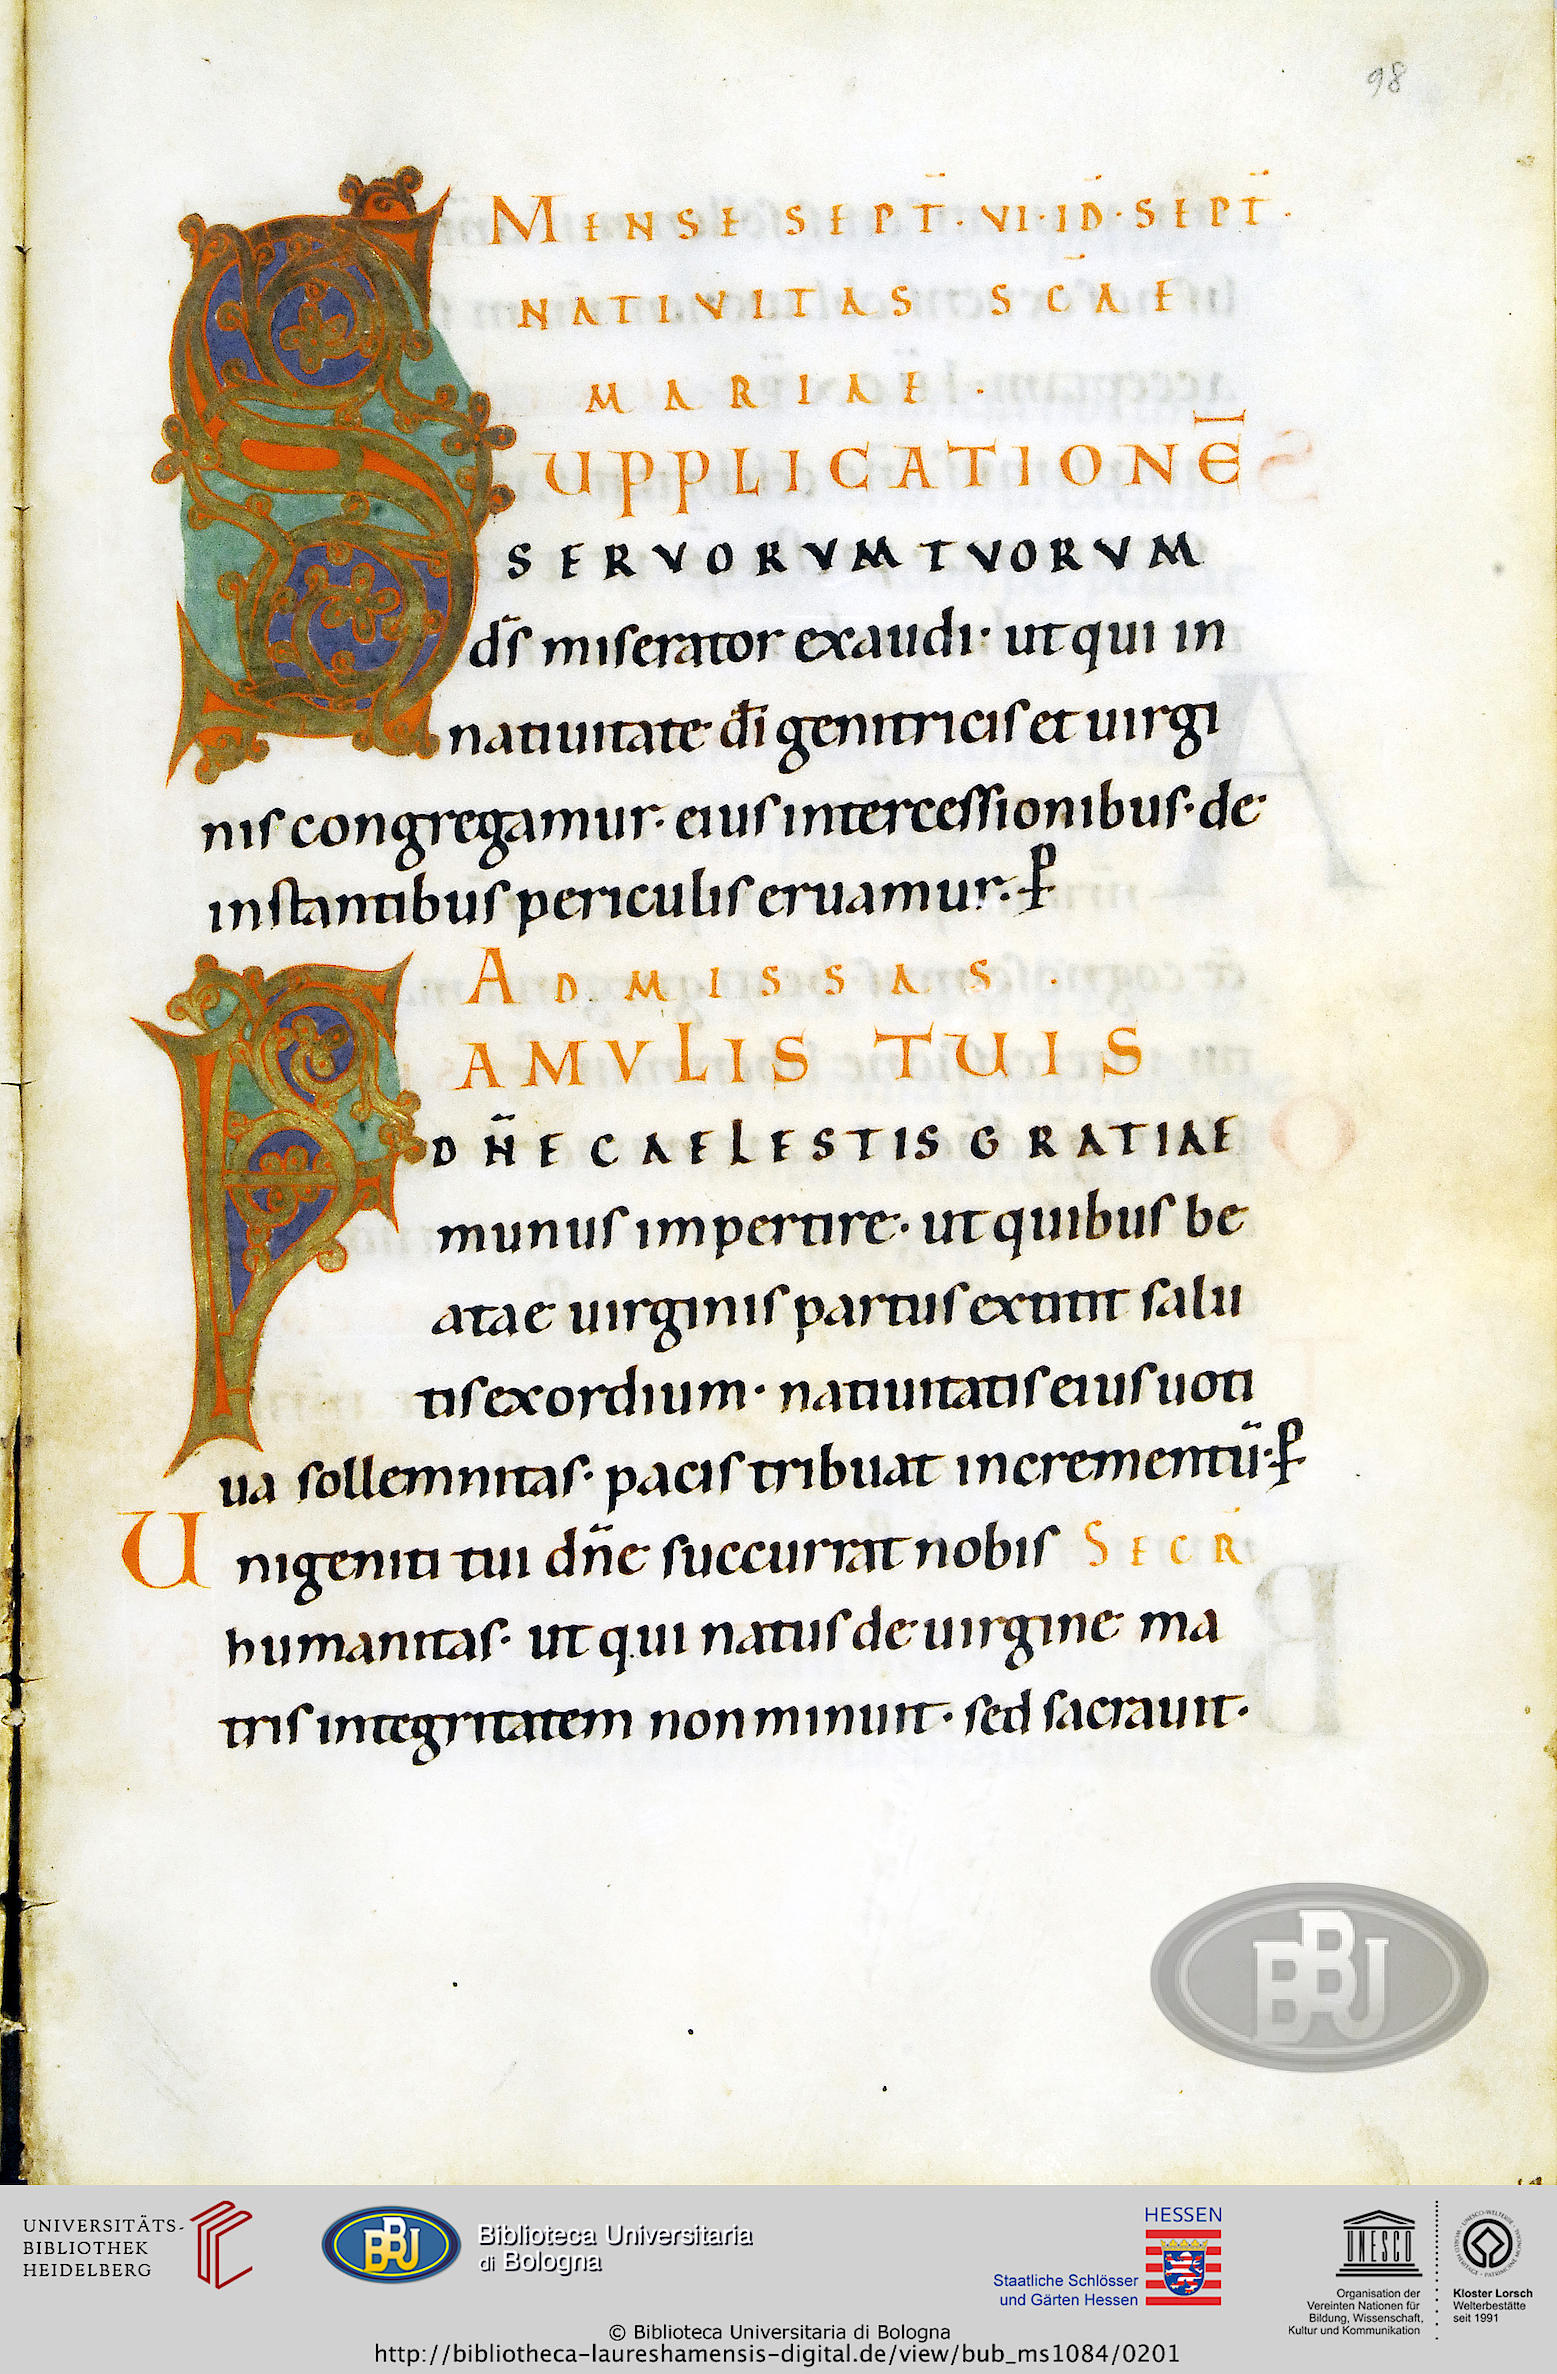 98
MENSE SEPT̄·VI·ID̄·SEPT̄·
NATIVITAS SC̄AE
MARIAE·
SUPPLICATIONĒ
SERVORVM TVORVM
d̄s miserator exaudi· ut qui in
natiuitate d̄i genitricis et uirgi
nis congregamur· eius intercessionibus· de
instantibus periculis eruamur· ꝑ
AD MISSAS·
FAMVLIS TUIS
DN̄E CAELESTIS GRATIAE
munus impertire· ut quibus be
atae uirginis partus extitit salu
tis exordium· natiuitatis eius uoti
ua sollemnitas· pacis tribuat incrementū· ꝑ
Unigeniti tui dn̄e succurrat nobis SECR̄
humanitas· ut qui natus de uirgine ma
tris integritatem non minuit· sed sacrauit·
BBU
UNIVERSITÄTS-
BIBLIOTHEK
HEIDELBERG
BBU
Biblioteca Universitaria
di Bologna
HESSEN
Staatliche Schlösser
und Gärten Hessen
UNESCO
Organisation der
Vereinten Nationen für
Bildung, Wissenschaft,
Kultur und Kommunikation
Kloster Lorsch
Welterbestätte
seit 1991
© Biblioteca Universitaria di Bologna
http://bibliotheca-laureshamensis-digital.de/view/bub_ms1084/0201